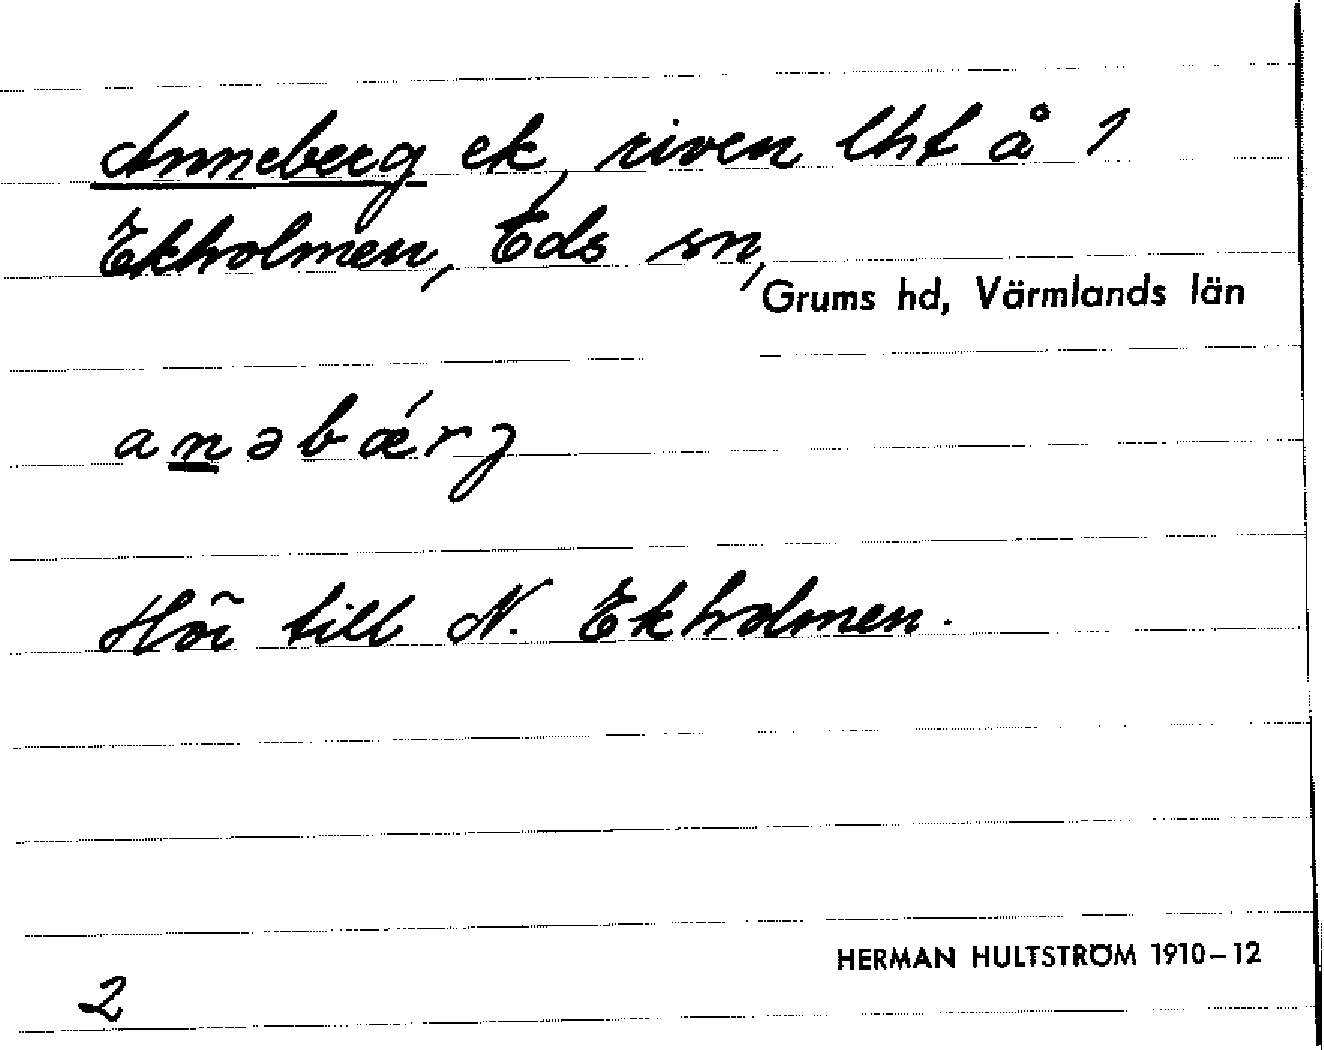 Anneberg ek, riven lht å 1
Ekholmen, Eds sn,
Grums hd, Värmlands län
anəbǽrj
Hör till N. Ekholmen.
HERMAN HULTSTRÖM 1910-12
2